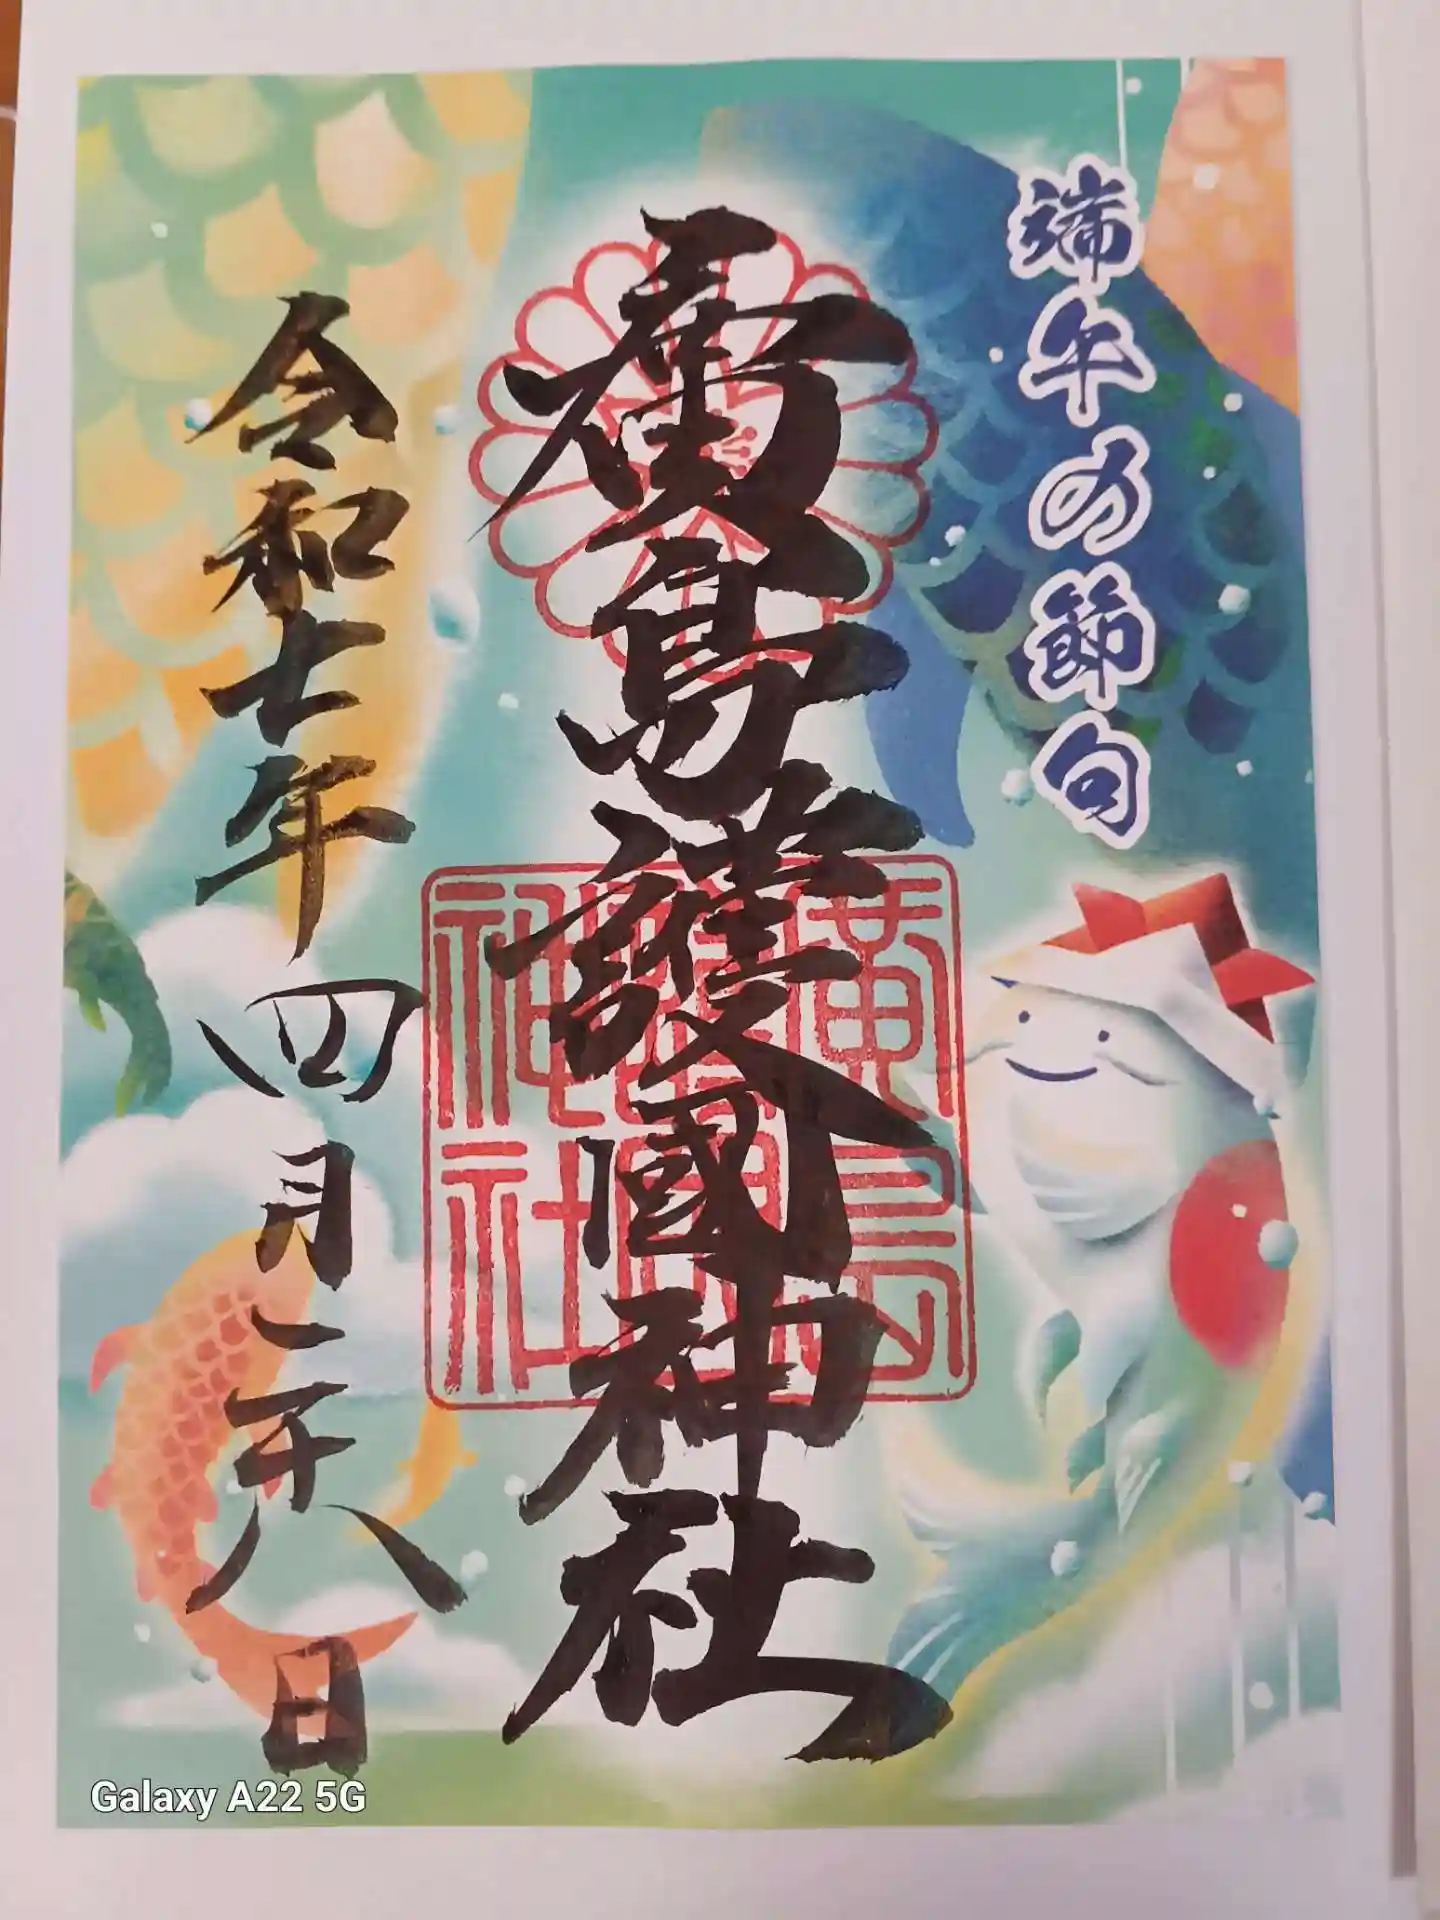 端午の節句
廣島護國神社
廣島護國神社
令和七年四月二十八日
Galaxy A22 5G